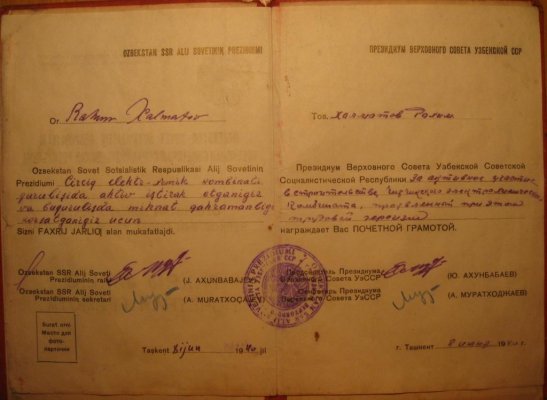 OZBEKSTAN SSR ALIJ SOVETININ PREZIDIUMI
Ort. Rahim Xalmatov
Ozbekstan Sovet Sotsialistik Respublikasi Alij Sovetinin
Prezidiumi Circiq elektr-ximik kombinati
qurulişida aktiv iştirak etganigiz
va bu qurulişda mehnat qahramanligi
korsatganigiz ucun
Sizni FAXRIJ JARLIQ bilan mukafatlajdi.
Ozbekstan SSR Alij Soveti
Prezidiuminin raisi
(J. AXUNBABAJEV)
Ozbekstan SSR Alij Soveti
Prezidiuminin sekretari
(A. MURATXOÇAJEV)
Surat orni
Место для
фото-
карточки
Taşkent 8 ijun 1940 jil
ПРЕЗИДИУМ ВЕРХОВНОГО СОВЕТА УЗБЕКСКОЙ ССР
Тов. Халматов Рахим
Президиум Верховного Совета Узбекской Советской
Социалистической Республики за активное участие
в строительстве Чирчикского электрохимического
Комбината, проявленный при этом
трудовой героизм
награждает Вас ПОЧЕТНОЙ ГРАМОТОЙ.
Председатель Президиума
Верховного Совета УзССР
(Ю. АХУНБАБАЕВ)
Секретарь Президиума
Верховного Совета УзССР
(А. МУРАТХОДЖАЕВ)
г. Ташкент 8 июня 1940 г.